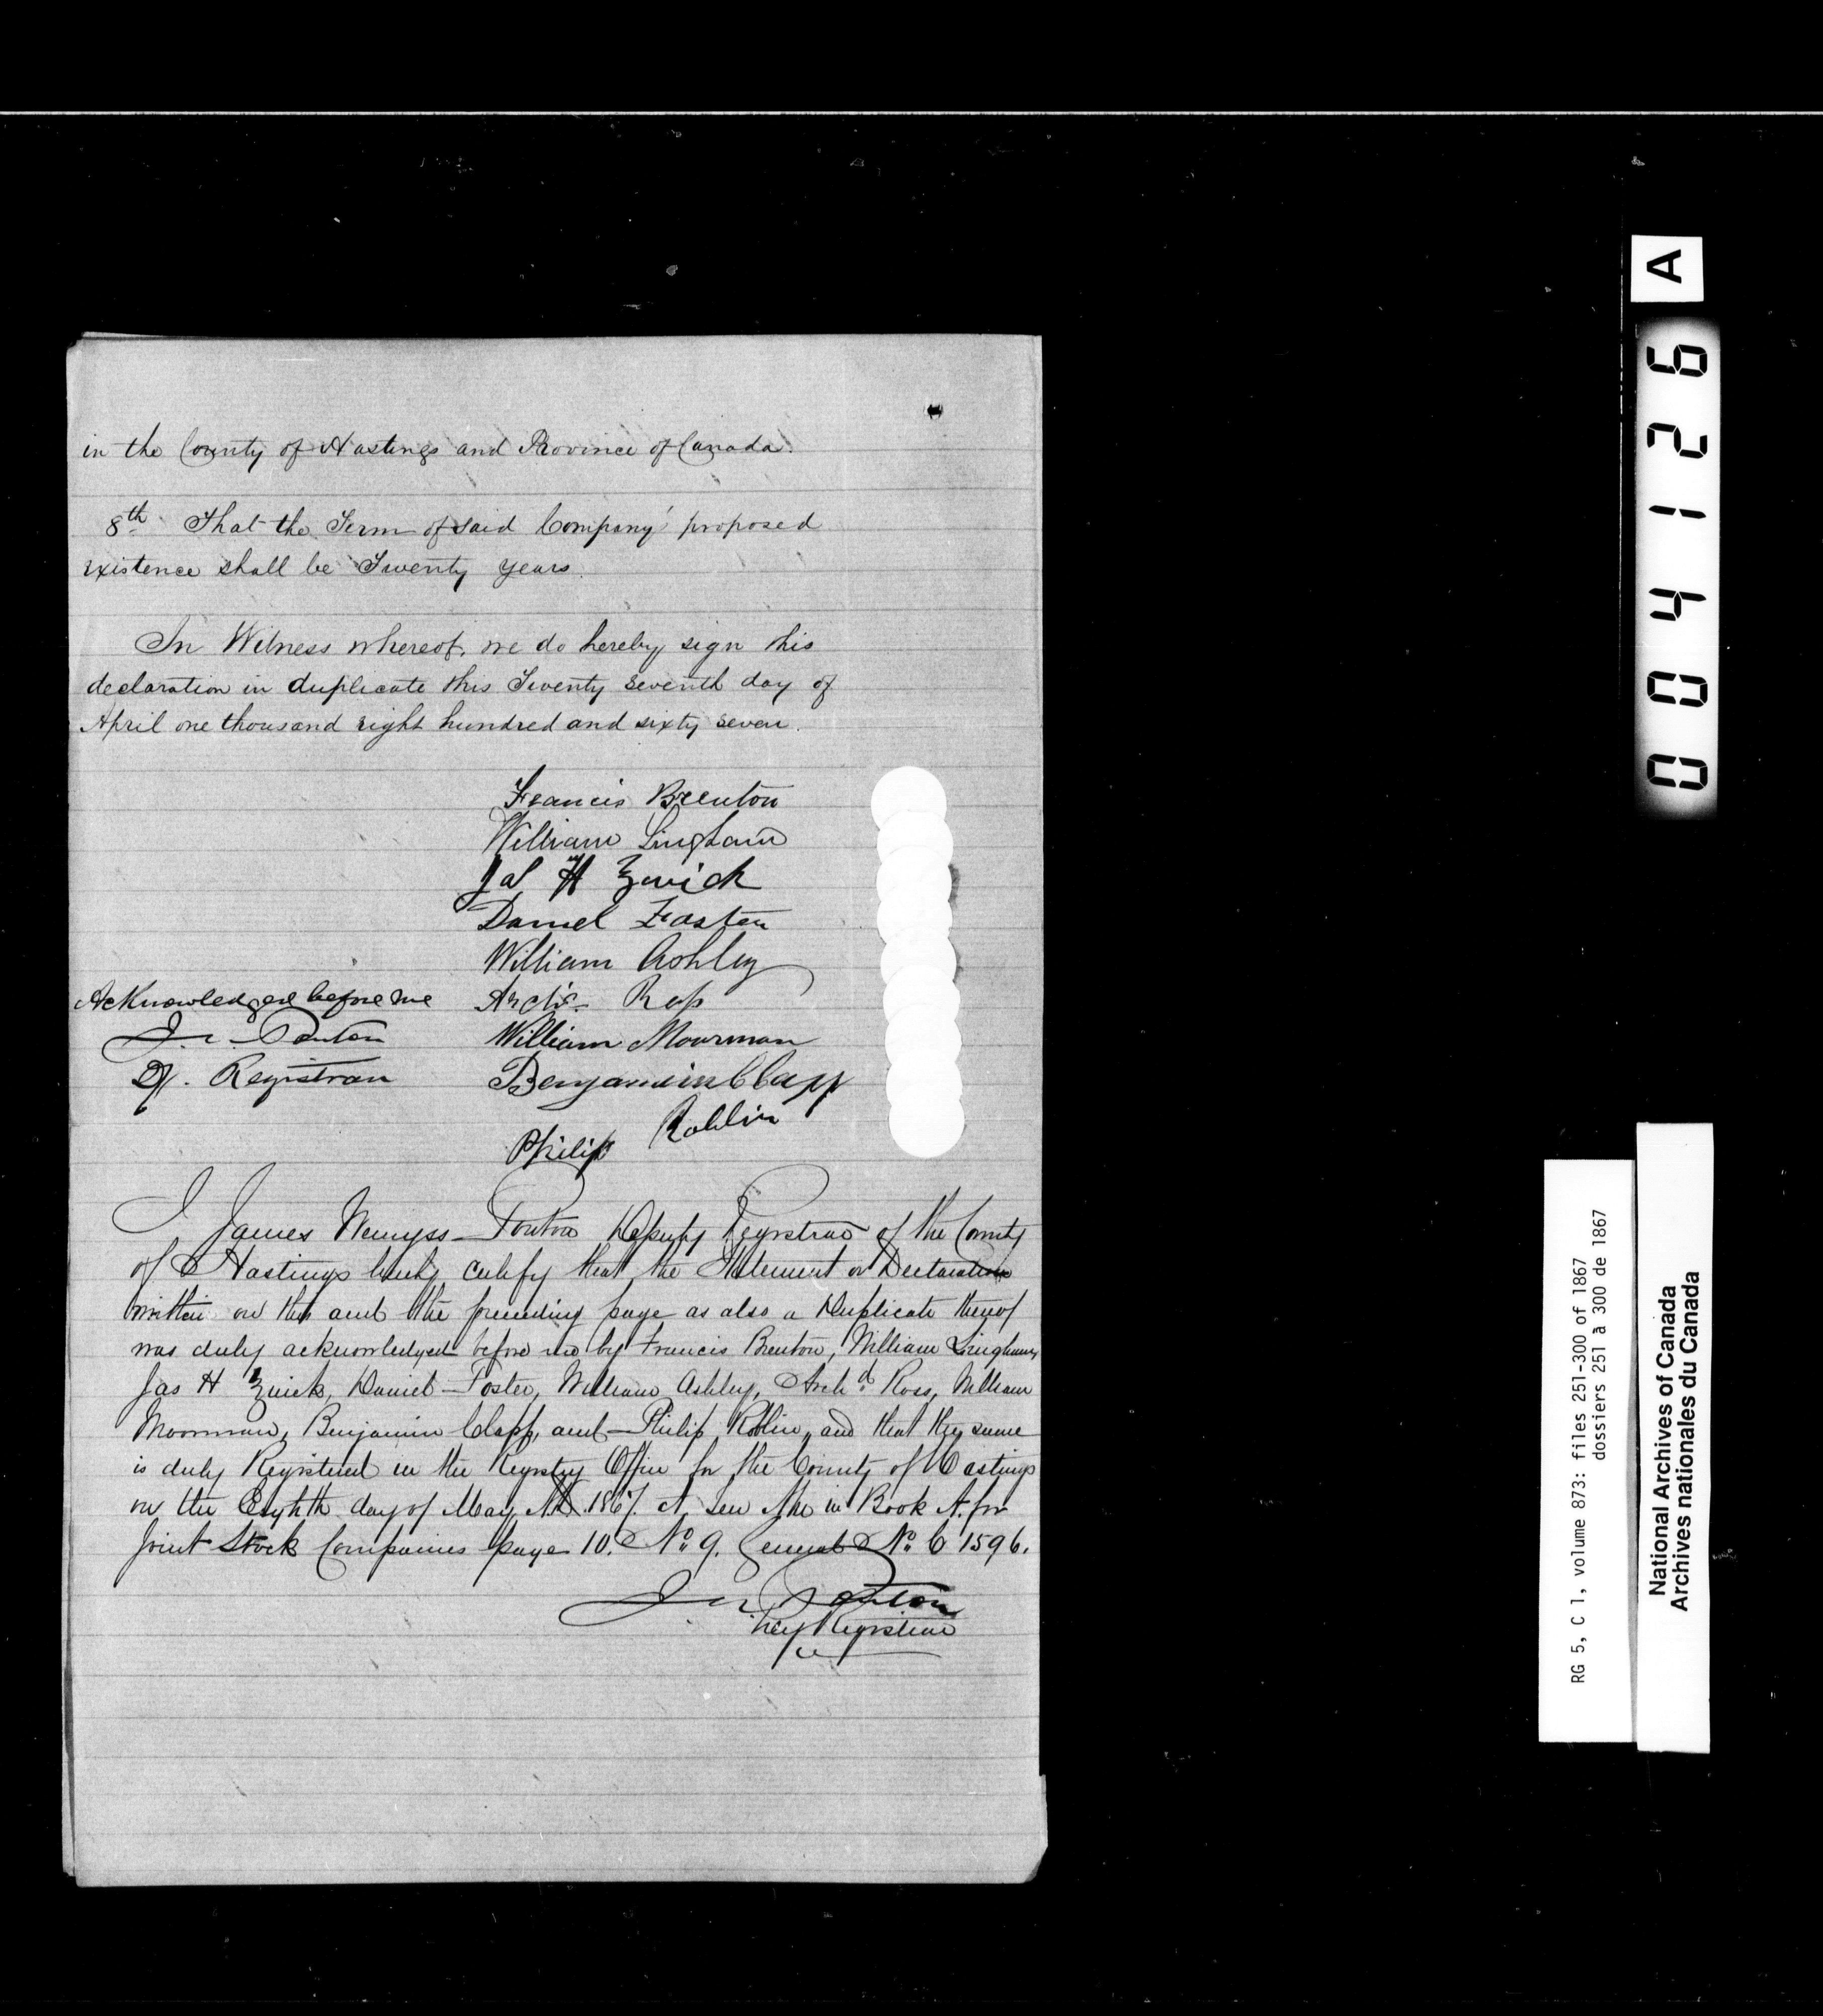 in the County of Hastings and Province of Canada.
8th That the Term of said Company' proposed
existence shall be Twenty years.
In Witness whereof, we do hereby sign this
declaration in duplicate this Twenty seventh day of
April one thousand eight hundred and sixty seven.
Francis Brenton
William Lingham
Jas H Zwick
Daniel Foster
William Ashley
Acknowledged before me
J. W. Ponton
Dy. Registrar
Archd. Ross
William Moorman
Benjamin Clapp
Philip Roblin
I James Wemyss Ponton Deputy Registrar of the County
of Hastings hereby certify that the Statement or Declaration
written on this and the preceding page as also a Duplicate thereof
was duly acknowledged before me by Francis Brenton, William Lingham,
Jas H Zwick, Daniel Foster, William Ashley, Archd. Ross, William
Moorman, Benjamin Clapp, and Philip Roblin, and that the same
is duly Registered in the Registry Office for the County of Hastings
on the Eighth day of May A.D. 1867. at in Book A. for
Joint Stock Companies page 10. No. 9. General No. C 1596.
J. W. Ponton
Registrar
A
004126
RG 5, C 1, volume 873: files 251-300 of 1867
dossiers 251 à 300 de 1867
National Archives of Canada
Archives nationales du Canada